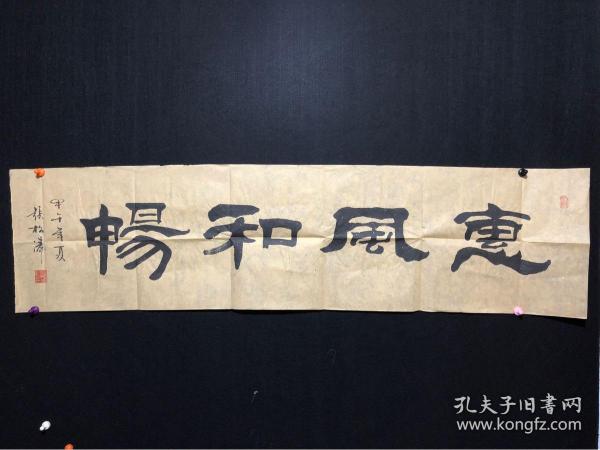 惠風和暢
甲午年夏
孔夫子旧書网
www.kongfz.com